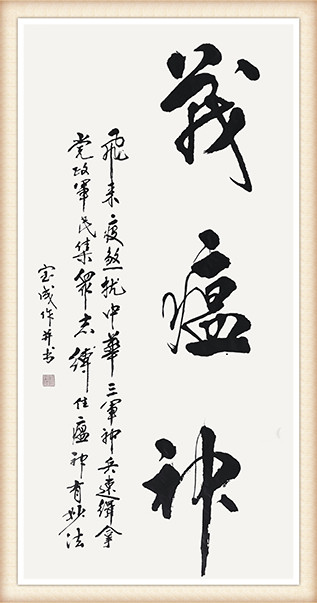 戰瘟神
飛来疫煞扰中華三軍神兵速緝拿
党政軍民集眾志縛住瘟神有妙法
宝成作并书